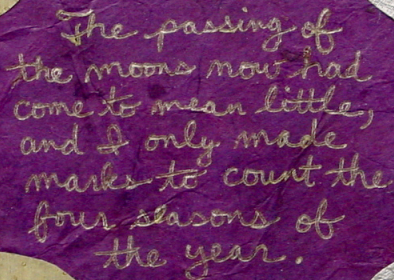 The passing of
the moons now had
come to mean little,
and I only made
marks to count the
four seasons of
the year.